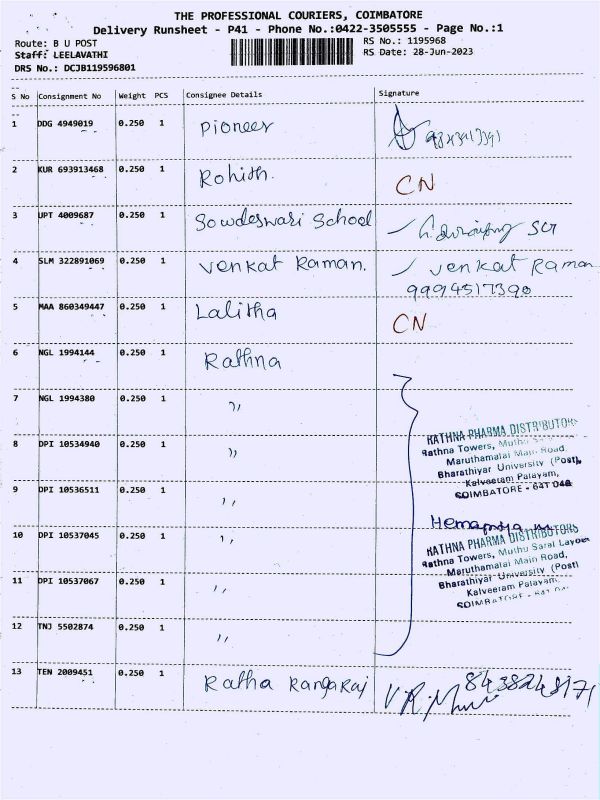 THE PROFESSIONAL COURIERS, COIMBATORE
Delivery Runsheet - P41 - Phone No.:0422-3505555 - Page No.:1
Route: B U POST
RS No.: 1195968
Staff: LEELAVATHI
RS Date: 28-Jun-2023
DRS No.: DCJB119596801
S No Consignment No Weight PCS Consignee Details Signature
1 DDG 4949019 0.250 1 Pioneer
2 KUR 693913468 0.250 1 Rohith. CN
3 UPT 4009687 0.250 1 Sowdeswari School
4 SLM 322891069 0.250 1 Venkat Raman. Venkat Raman
9994517390
5 MAA 860349447 0.250 1 Lalitha CN
6 NGL 1994144 0.250 1 Rathna
7 NGL 1994380 0.250 1 ,,
8 DPI 10534940 0.250 1 ,,
9 DPI 10536511 0.250 1 ,,
10 DPI 10537045 0.250 1 ,,
11 DPI 10537067 0.250 1 ,,
12 TNJ 5502874 0.250 1 ,,
RATHNA PHARMA DISTRIBUTORS
Rathna Towers, Muthu
Maruthamalai Main Road,
Bharathiyar University (Post),
Kalveeram Palayam,
COIMBATORE - 641 046
Hemapriya M
RATHNA PHARMA DISTRIBUTORS
Rathna Towers, Muthu Saral Layout
Maruthamalai Main Road,
Bharathiyar University (Post)
Kalveeram Palayam,
COIMBATORE - 641
13 TEN 2009451 0.250 1 Ratha Rangaraj 8438248171